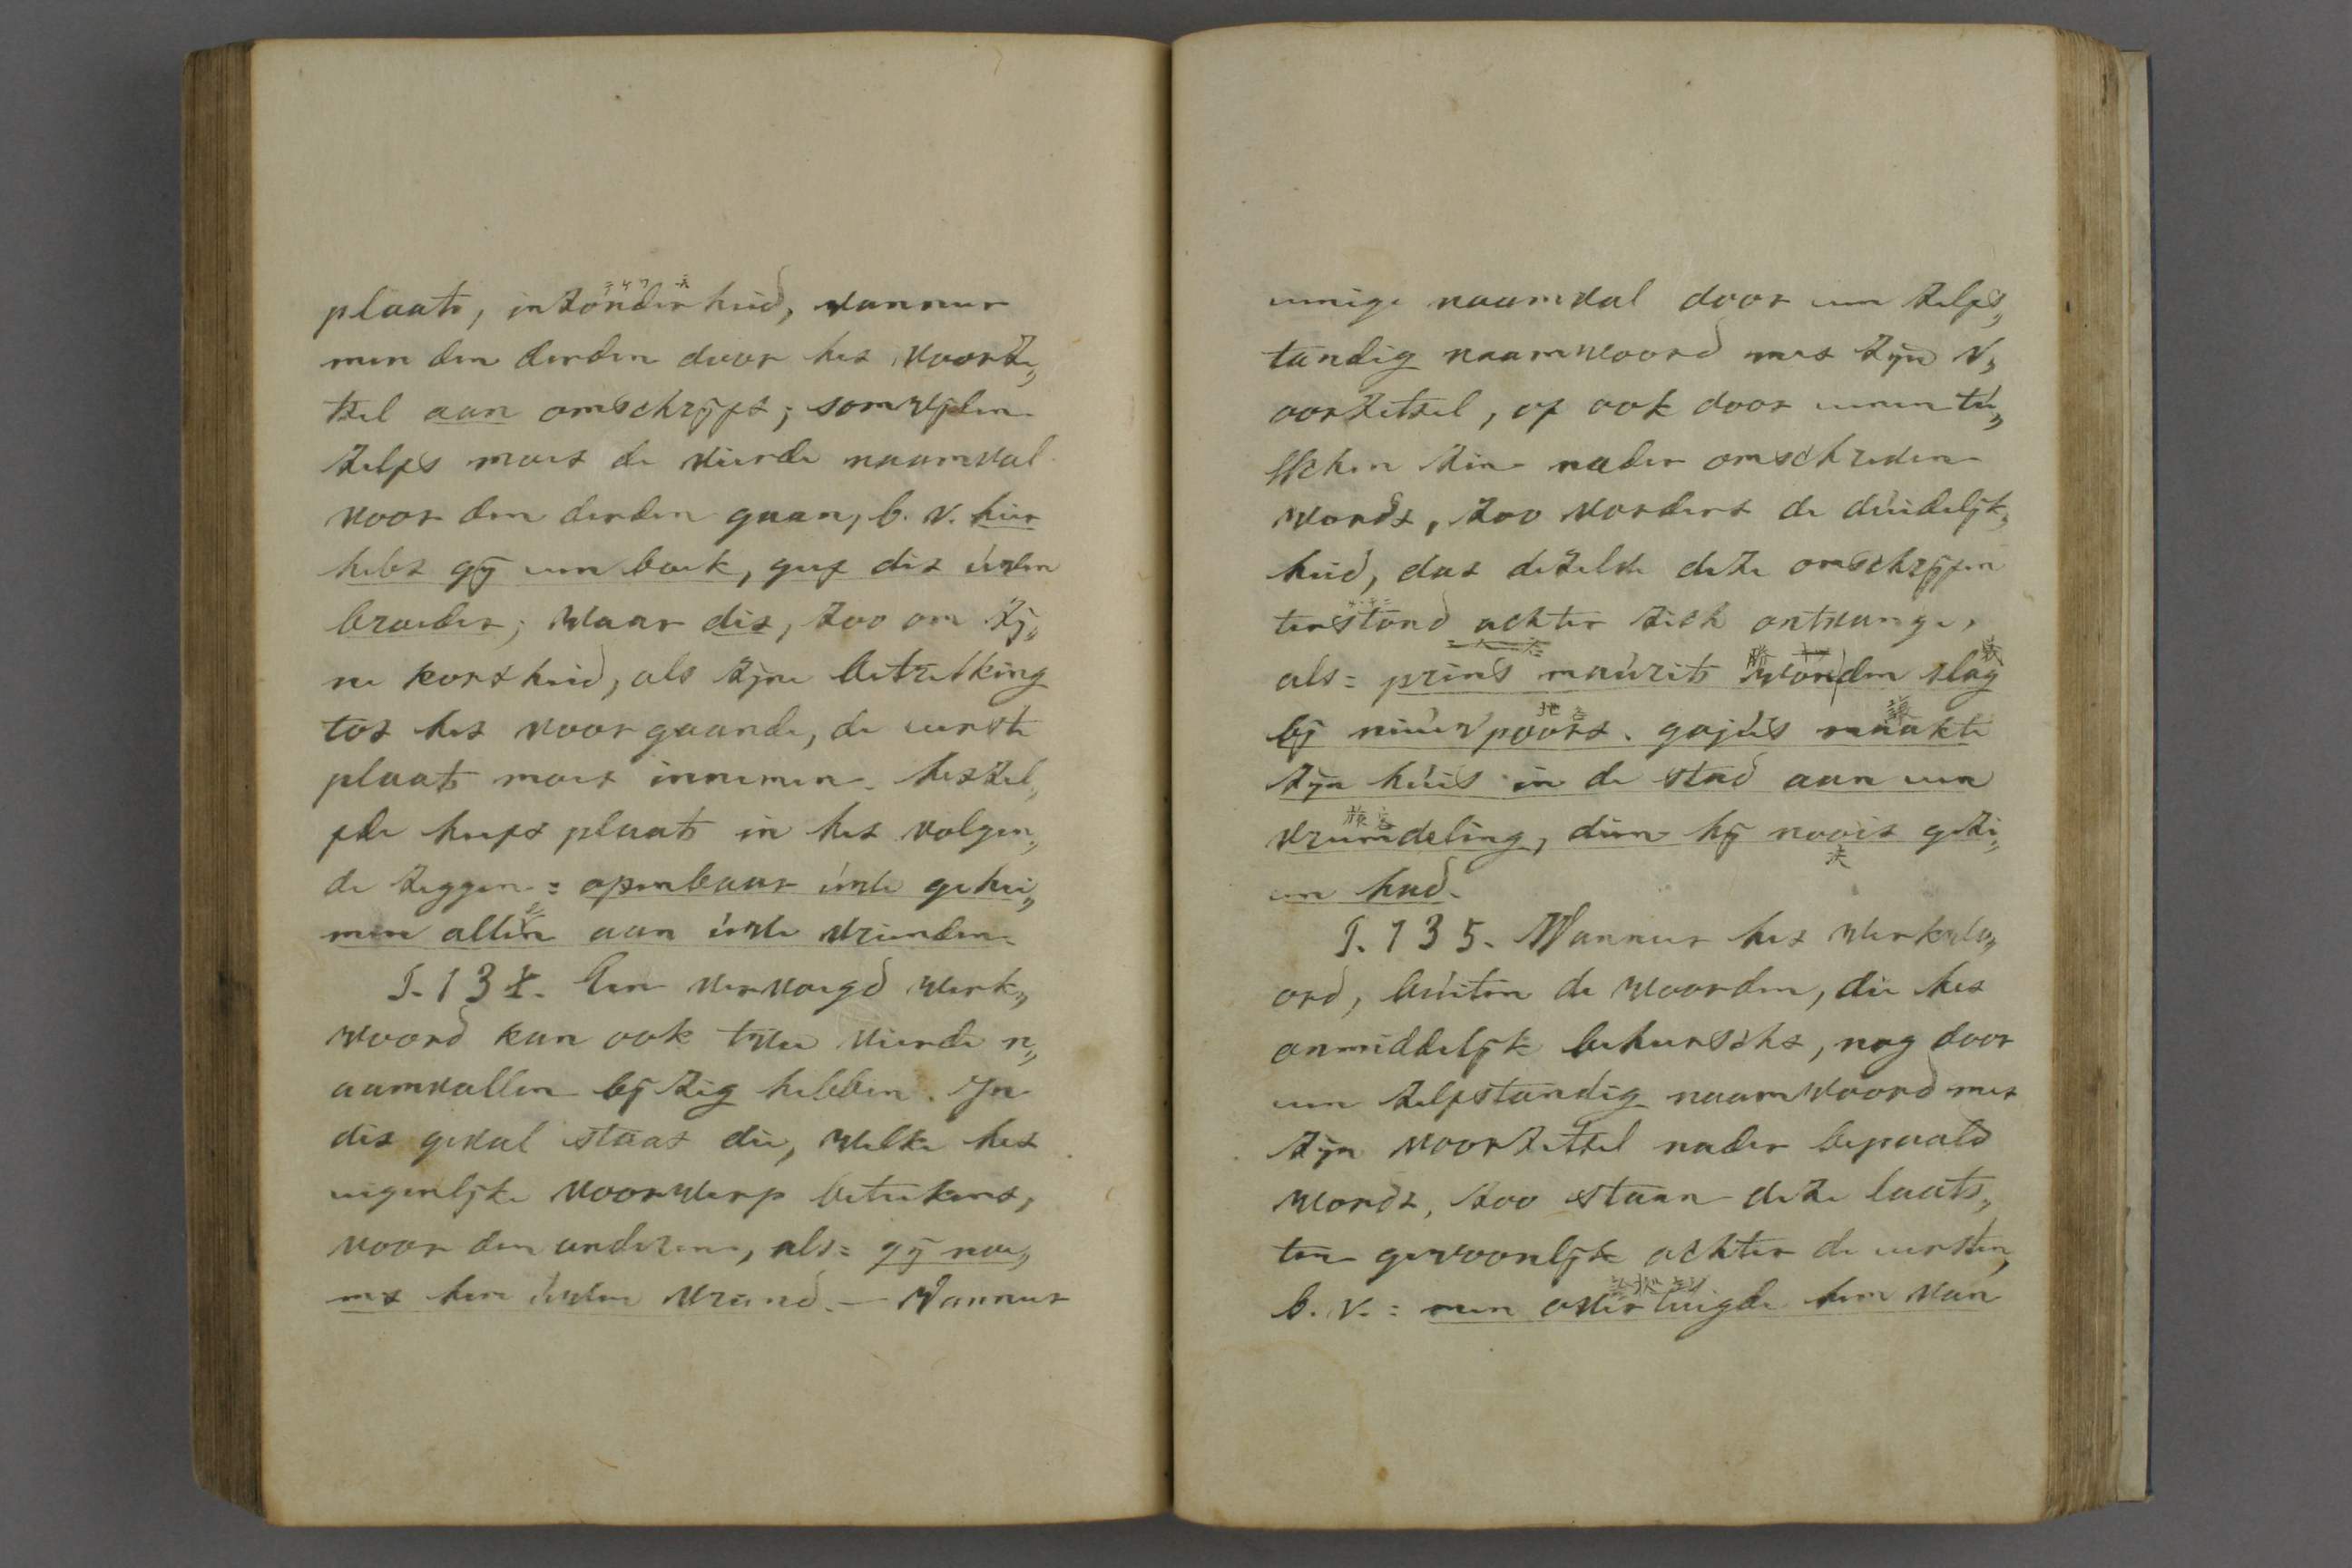 plaats, inzonderheid, wanneer
men den derden door het voorze„
tsel aan omschrijft; somwijlen
zelfs moet de vierde naamval
voor den derden gaan, b. v. hier
hebt gij een boek, geef dit uwen
broeder; waar dit, zoo om zij„
ne kortheid, als zijne betrekking
tot het voorgaande, de eerste
plaats moet innemen. hetzel„
fde heeft plaats in het volgen„
de zeggen: openbaar uwe gehei„
men alleen aan uwe vrienden.
§. 134. Een vervoegd werk„
woord kan ook twee vierde n„
aamvallen bij zig hebben. In
dit geval staat die, welke het
eigenlijke voorwerp beteekent,
voor den anderen, als: gij noe„
mt hem uwen vriend. — Wanneer
eenige naamval door een zelfs„
tandig naamwoord met zijn v„
oorzetsel, of ook door eenen tu„
sschen zin nader omschreven
wordt, zoo vordert de duidelijk„
heid, dat dezelve deze omschrijfen
terstond achter zich ontvange,
als: prins maurits won den slag
bij nieuwpoort. gajus maakte
zijn huis in de stad aan een
vreemdeling, dien hij nooit gezi„
en had.
§. 135. Wanneer het werkwo„
ord, buiten de woorden, die het
onmiddelijk beheerscht, nog door
een zelfstandig naamwoord met
zijn voorzetsel nader bepaald
wordt, zoo staan deze laats„
ten gewoonlijk achter de eersten,
b. v.: men overtuigde hem van